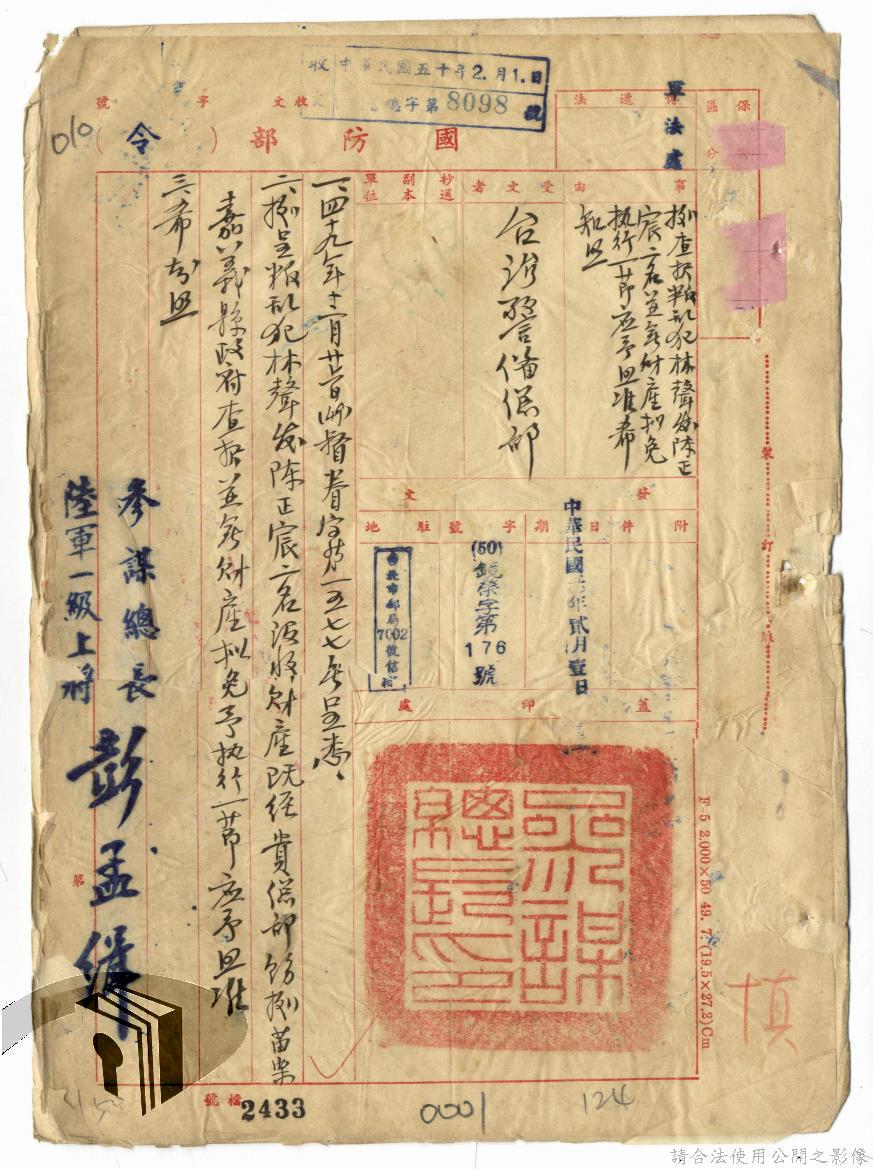 收 中華民國五十年2.月1.日
收文 總字第8098號
保區分
傳遞法
軍法處
國防部（令）
收文 字 號
010
事由
據查報叛亂犯林聲發陳正
宸二名並無財產擬免
执行一節应予照准希
知照
受文者
台湾警備總部
抄送副本單位
發文
附件
日期
中華民國五十年貳月壹日
字號
(50)鏡榮字第176號
駐地
台北市郵局7002號信箱
蓋印處
參謀總長之印
一、四十九年十二月廿 督 字第一五七七号呈悉、
二、據呈叛乱犯林聲發陈正宸二名沒收財產既经貴總部飭據苗栗
嘉義縣政府查報並無財產拟免予执行一節应予照准
三、希知照
參謀總長
陸軍一級上將
彭孟緝
裝訂線
F-5 2.000×50 49. 7. (19.5×27.2)Cm
慎
第
檔號
2433
0001
124
請合法使用公開之影像